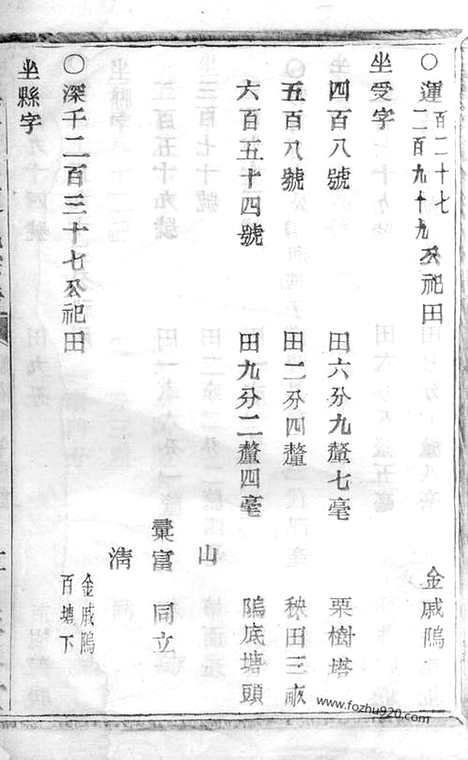 ○運百二十七二百九十九公祀田 金戚隝
坐受字
四百八號 田六分九釐七毫 栗樹塔
五百八號 田二分四釐 秧田三畝
六百五十四號 田九分二釐四毫 隝底塘頭
山
彙富 同立
清
○深千二百三十七公祀田 金戚隝百塘下
坐縣字
www.fozhu920.com